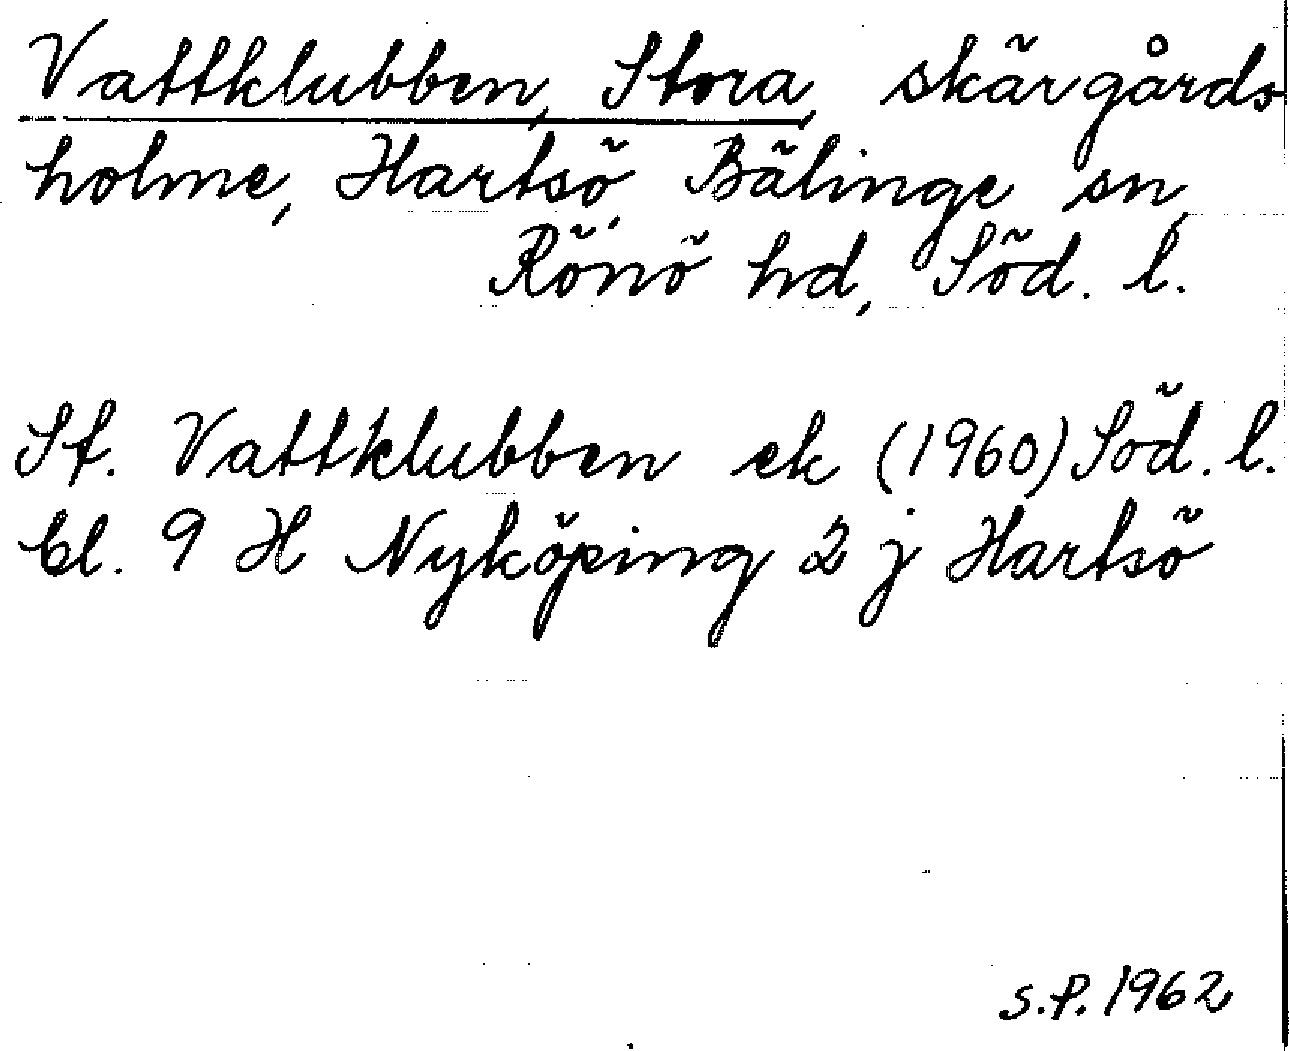 Vattklubben, Stora, skärgårds
holme, Hartsö, Bälinge sn,
Rönö hd, Söd. l.
St. Vattklubben ek (1960) Söd. l.
bl. 9 H Nyköping 2 j Hartsö
S.P. 1962